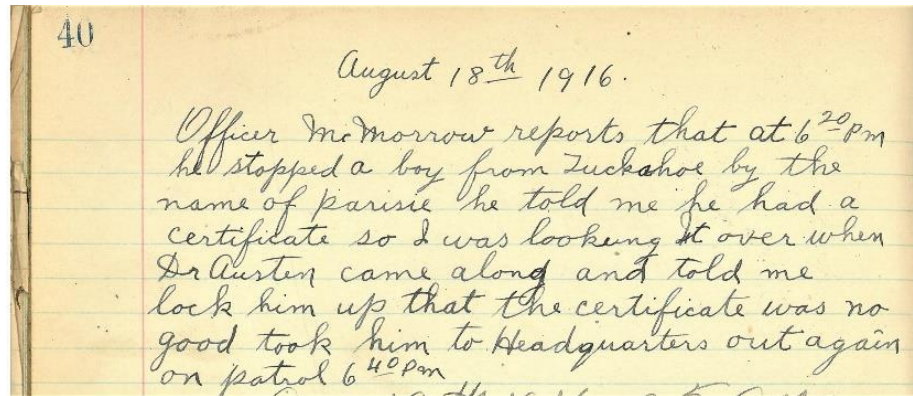 40
August 18th 1916.
Officer McMorrow reports that at 6 20 Pm
he stopped a boy from Tuckahoe by the
name of parisie he told me he had a
certificate so I was lookung it over when
Dr Austen came along and told me
lock him up that the certificate was no
good took him to Headquarters out again
on patrol 6 40 Pm